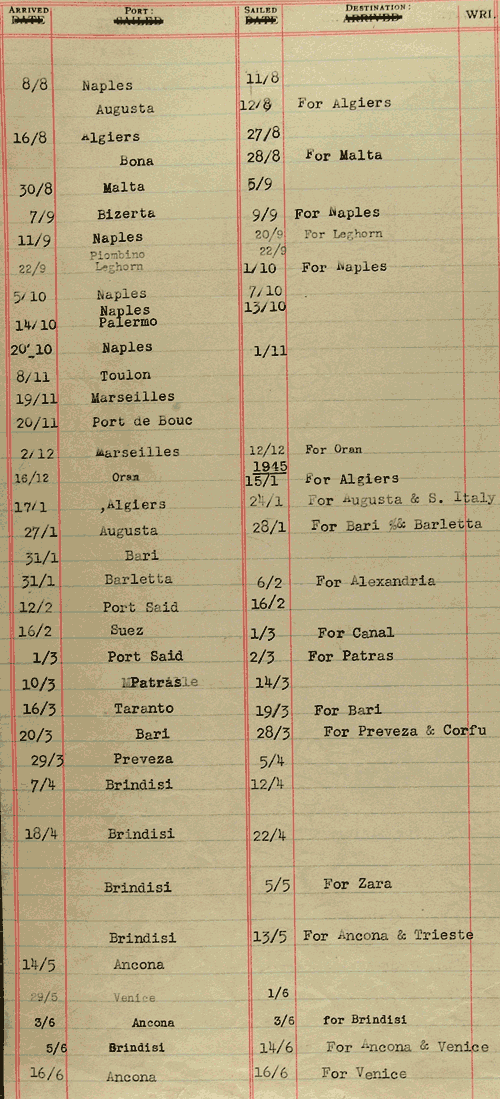 ARRIVED PORT: SAILED DESTINATION:
DATE SAILED DATE ARRIVED WRI.
8/8 Naples 11/8
Augusta 12/8 For Algiers
16/8 Algiers 27/8
Bona 28/8 For Malta
30/8 Malta 5/9
7/9 Bizerta 9/9 For Naples
11/9 Naples 20/9 For Leghorn
Piombino 22/9
22/9 Leghorn 1/10 For Naples
5/10 Naples 7/10
Naples 13/10
14/10 Palermo
20/10 Naples 1/11
8/11 Toulon
19/11 Marseilles
20/11 Port de Bouc
2/12 Marseilles 12/12 For Oran
1945
16/12 Oran 15/1 For Algiers
17/1 ,Algiers 24/1 For Augusta & S. Italy
27/1 Augusta 28/1 For Bari & Barletta
31/1 Bari
31/1 Barletta 6/2 For Alexandria
12/2 Port Said 16/2
16/2 Suez 1/3 For Canal
1/3 Port Said 2/3 For Patras
10/3 Patras 14/3
16/3 Taranto 19/3 For Bari
20/3 Bari 28/3 For Preveza & Corfu
29/3 Preveza 5/4
7/4 Brindisi 12/4
18/4 Brindisi 22/4
Brindisi 5/5 For Zara
Brindisi 13/5 For Ancona & Trieste
14/5 Ancona
29/5 Venice 1/6
3/6 Ancona 3/6 for Brindisi
5/6 Brindisi 14/6 For Ancona & Venice
16/6 Ancona 16/6 For Venice